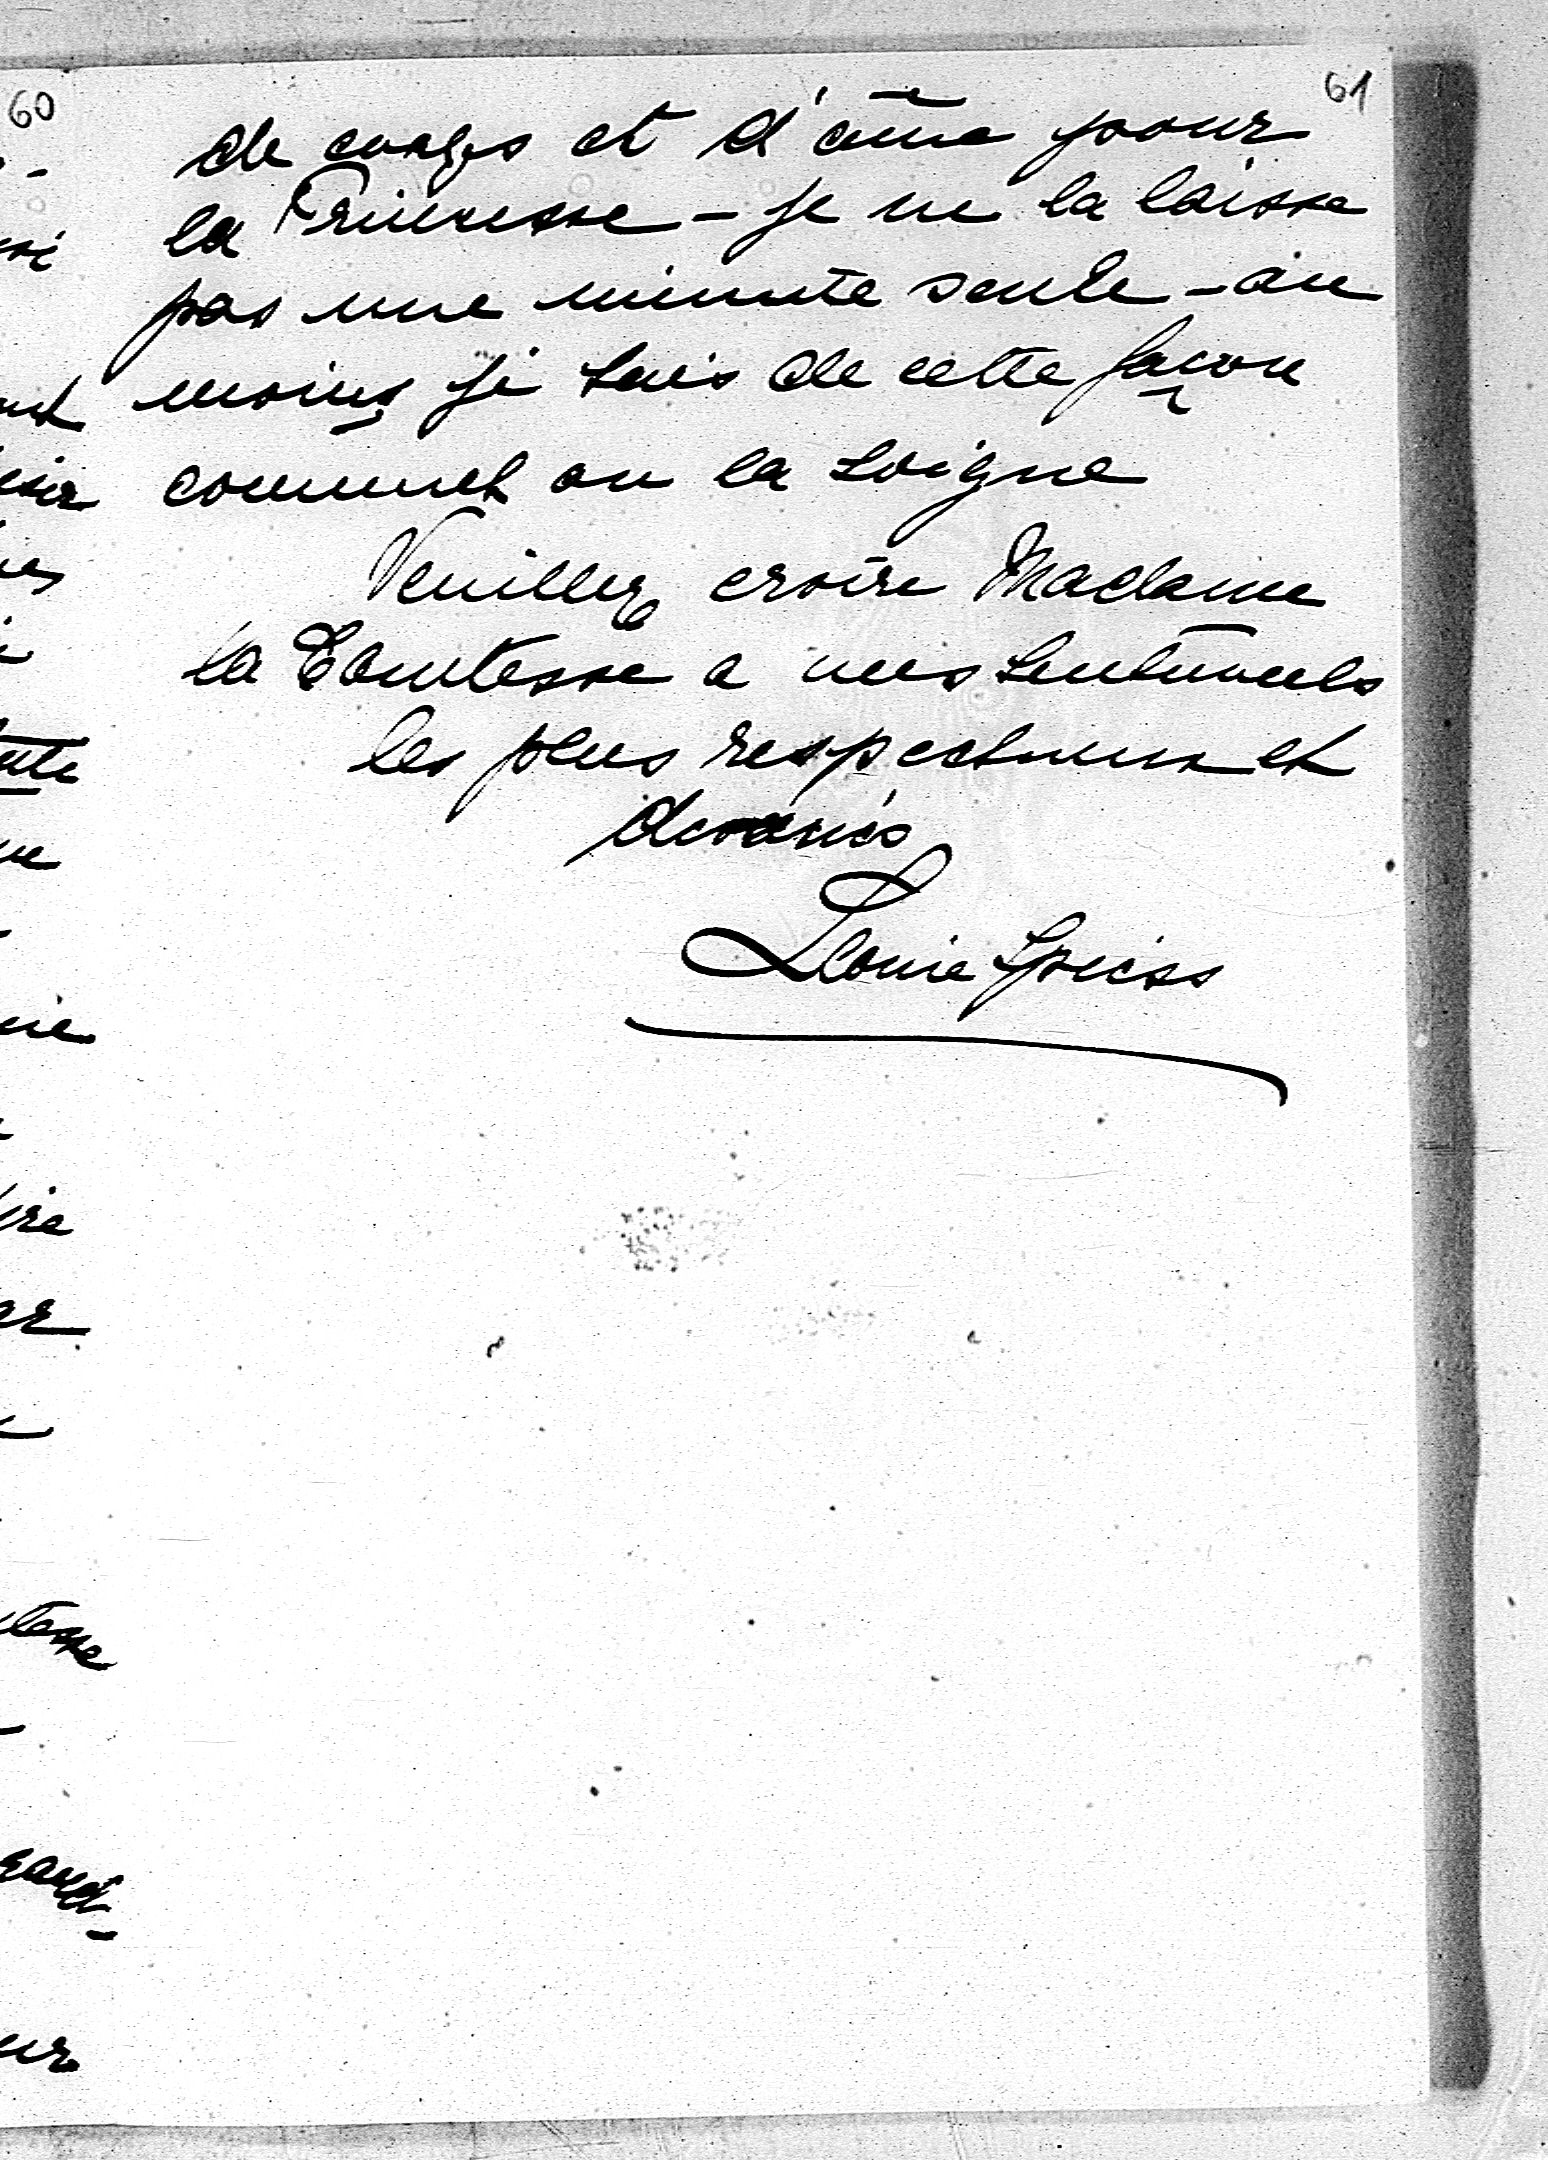 60
61
de corps et d'âme pour
la Princesse – je ne la laisse
pas une minute seule – au
moins je sais de cette façon
comment on la soigne
Veuillez croire Madame
la Comtesse a mes sentiments
les plus respectueux et
dévoués